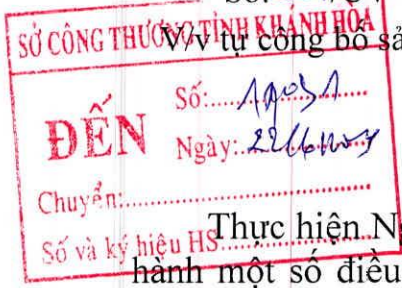 SỞ CÔNG THƯƠNG TỈNH KHÁNH HÒA
V/v tự công bố sả
ĐẾN
Số:
Ngày:
Chuyển:
Số và ký hiệu HS:
Thực hiện N
hành một số điều